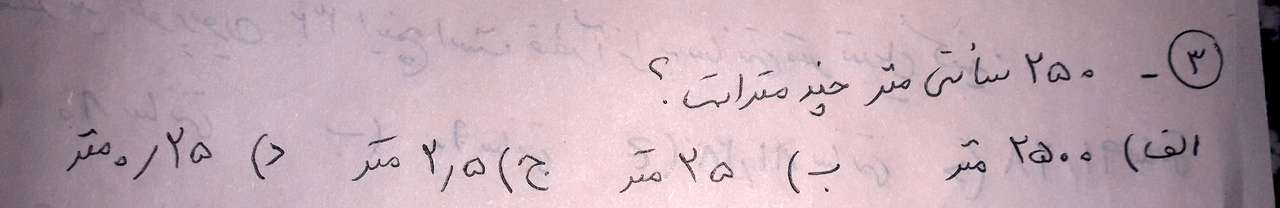 ۳ - ۲۵۰ سانتی متر چند متر است؟
الف) ۲۵۰۰ متر ب) ۲۵ متر ج) ۲٫۵ متر د) ۰٫۲۵ متر